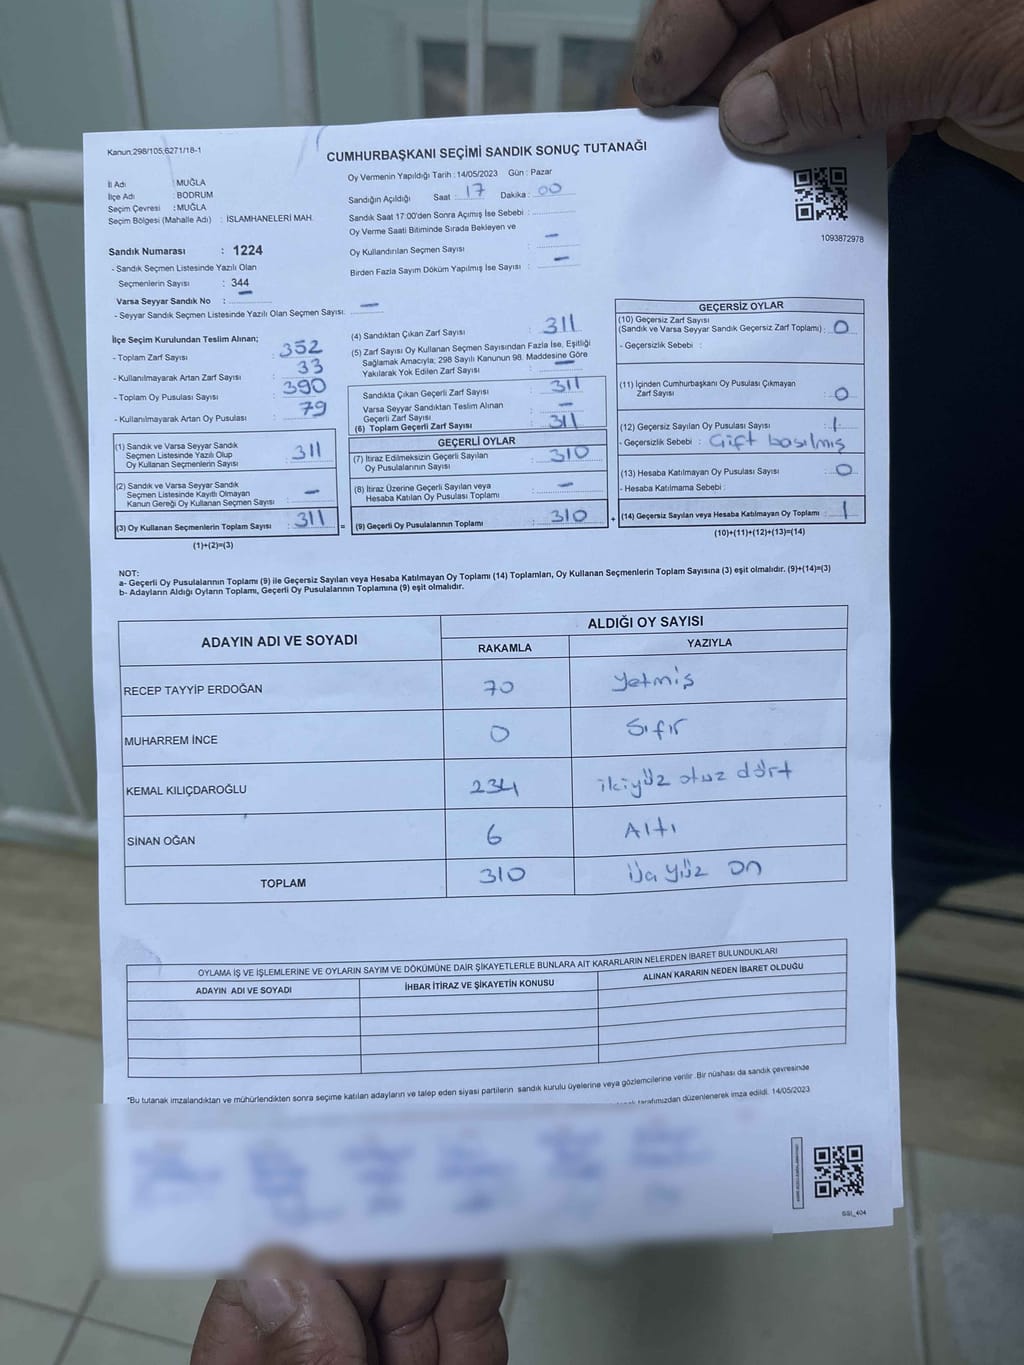 Kanun:298/105,6271/18-1
CUMHURBAŞKANI SEÇİMİ SANDIK SONUÇ TUTANAĞI
İl Adı : MUĞLA
İlçe Adı : BODRUM
Seçim Çevresi : MUĞLA
Seçim Bölgesi (Mahalle Adı) : İSLAMHANELERİ MAH.
Oy Vermenin Yapıldığı Tarih : 14/05/2023 Gün : Pazar
Sandığın Açıldığı Saat : 17 Dakika : 00
Sandık Saat 17:00'den Sonra Açımış İse Sebebi :
Oy Verme Saati Bitiminde Sırada Bekleyen ve
Oy Kullandırılan Seçmen Sayısı : –
Birden Fazla Sayım Döküm Yapılmış İse Sayısı : –
1093872978
Sandık Numarası : 1224
- Sandık Seçmen Listesinde Yazılı Olan
Seçmenlerin Sayısı : 344
Varsa Seyyar Sandık No : –
- Seyyar Sandık Seçmen Listesinde Yazılı Olan Seçmen Sayısı: –
İlçe Seçim Kurulundan Teslim Alınan;
- Toplam Zarf Sayısı : 352
- Kullanılmayarak Artan Zarf Sayısı : 33
- Toplam Oy Pusulası Sayısı : 390
- Kullanılmayarak Artan Oy Pusulası : 79
(1) Sandık ve Varsa Seyyar Sandık
Seçmen Listesinde Yazılı Olup
Oy Kullanan Seçmenlerin Sayısı : 311
(2) Sandık ve Varsa Seyyar Sandık
Seçmen Listesinde Kayıtlı Olmayan
Kanun Gereği Oy Kullanan Seçmen Sayısı : –
(3) Oy Kullanan Seçmenlerin Toplam Sayısı : 311 =
(1)+(2)=(3)
(4) Sandıktan Çıkan Zarf Sayısı : 311
(5) Zarf Sayısı Oy Kullanan Seçmen Sayısından Fazla İse, Eşitliği
Sağlamak Amacıyla; 298 Sayılı Kanunun 98. Maddesine Göre
Yakılarak Yok Edilen Zarf Sayısı : –
Sandıkta Çıkan Geçerli Zarf Sayısı : 311
Varsa Seyyar Sandıktan Teslim Alınan
Geçerli Zarf Sayısı : –
(6) Toplam Geçerli Zarf Sayısı : 311
GEÇERLİ OYLAR
(7) İtiraz Edilmeksizin Geçerli Sayılan
Oy Pusulalarının Sayısı : 310
(8) İtiraz Üzerine Geçerli Sayılan veya
Hesaba Katılan Oy Pusulası Toplamı : –
(9) Geçerli Oy Pusulalarının Toplamı : 310 +
GEÇERSİZ OYLAR
(10) Geçersiz Zarf Sayısı
(Sandık ve Varsa Seyyar Sandık Geçersiz Zarf Toplamı) : 0
- Geçersizlik Sebebi :
(11) İçinden Cumhurbaşkanı Oy Pusulası Çıkmayan
Zarf Sayısı : 0
(12) Geçersiz Sayılan Oy Pusulası Sayısı : 1
- Geçersizlik Sebebi : Çift basılmış
(13) Hesaba Katılmayan Oy Pusulası Sayısı : 0
- Hesaba Katılmama Sebebi :
(14) Geçersiz Sayılan veya Hesaba Katılmayan Oy Toplamı : 1
(10)+(11)+(12)+(13)=(14)
NOT:
a- Geçerli Oy Pusulalarının Toplamı (9) ile Geçersiz Sayılan veya Hesaba Katılmayan Oy Toplamı (14) Toplamları, Oy Kullanan Seçmenlerin Toplam Sayısına (3) eşit olmalıdır. (9)+(14)=(3)
b- Adayların Aldığı Oyların Toplamı, Geçerli Oy Pusulalarının Toplamına (9) eşit olmalıdır.
ADAYIN ADI VE SOYADI
ALDIĞI OY SAYISI
RAKAMLA YAZIYLA
RECEP TAYYİP ERDOĞAN 70 yetmiş
MUHARREM İNCE 0 Sıfır
KEMAL KILIÇDAROĞLU 234 ikiyüz otuz dört
SİNAN OĞAN 6 Altı
TOPLAM 310 üçyüz on
OYLAMA İŞ VE İŞLEMLERİNE VE OYLARIN SAYIM VE DÖKÜMÜNE DAİR ŞİKAYETLERLE BUNLARA AİT KARARLARIN NELERDEN İBARET BULUNDUKLARI
ADAYIN ADI VE SOYADI İHBAR İTİRAZ VE ŞİKAYETİN KONUSU ALINAN KARARIN NEDEN İBARET OLDUĞU
*Bu tutanak imzalandıktan ve mühürlendikten sonra seçime katılan adayların ve talep eden siyasi partilerin sandık kurulu üyelerine veya gözlemcilerine verilir. Bir nüshası da sandık çevresinde
tarafımızdan düzenlenerek imza edildi. 14/05/2023
SSI_404